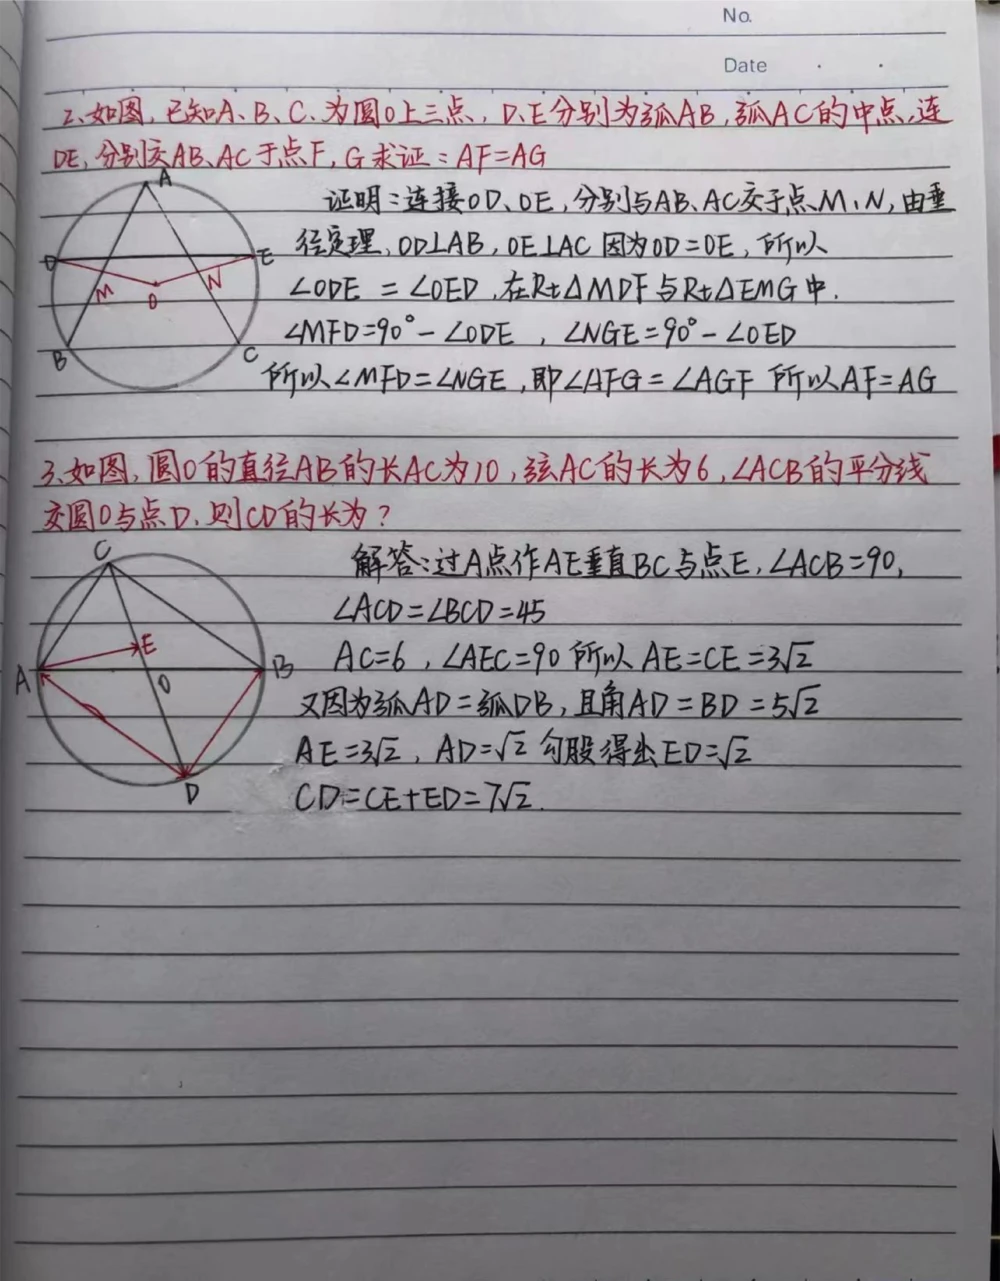 No.
Date
2、如图,已知A、B、C、为圆O上三点,D、E分别为弧AB,弧AC的中点,连
DE,分别交AB、AC于点F,G求证:AF=AG
A
D
E
M
N
O
B
C
证明:连接OD、OE,分别与AB、AC交于点M、N,由垂
径定理,OD⊥AB,OE⊥AC因为OD=OE,所以
∠ODE=∠OED,在Rt△MDF与Rt△EMG中.
∠MFD=90°-∠ODE,∠NGE=90°-∠OED
所以∠MFD=∠NGE,即∠AFG=∠AGF 所以AF=AG
3、如图,圆O的直径AB的长AC为10,弦AC的长为6,∠ACB的平分线
交圆O与点D.则CD的长为?
C
E
A
O
B
D
解答:过A点作AE垂直BC与点E,∠ACB=90,
∠ACD=∠BCD=45
AC=6,∠AEC=90所以AE=CE=3√2
又因为弧AD=弧DB,且角AD=BD=5√2
AE=3√2,AD=√2 勾股得出ED=√2
CD=CE+ED=7√2.